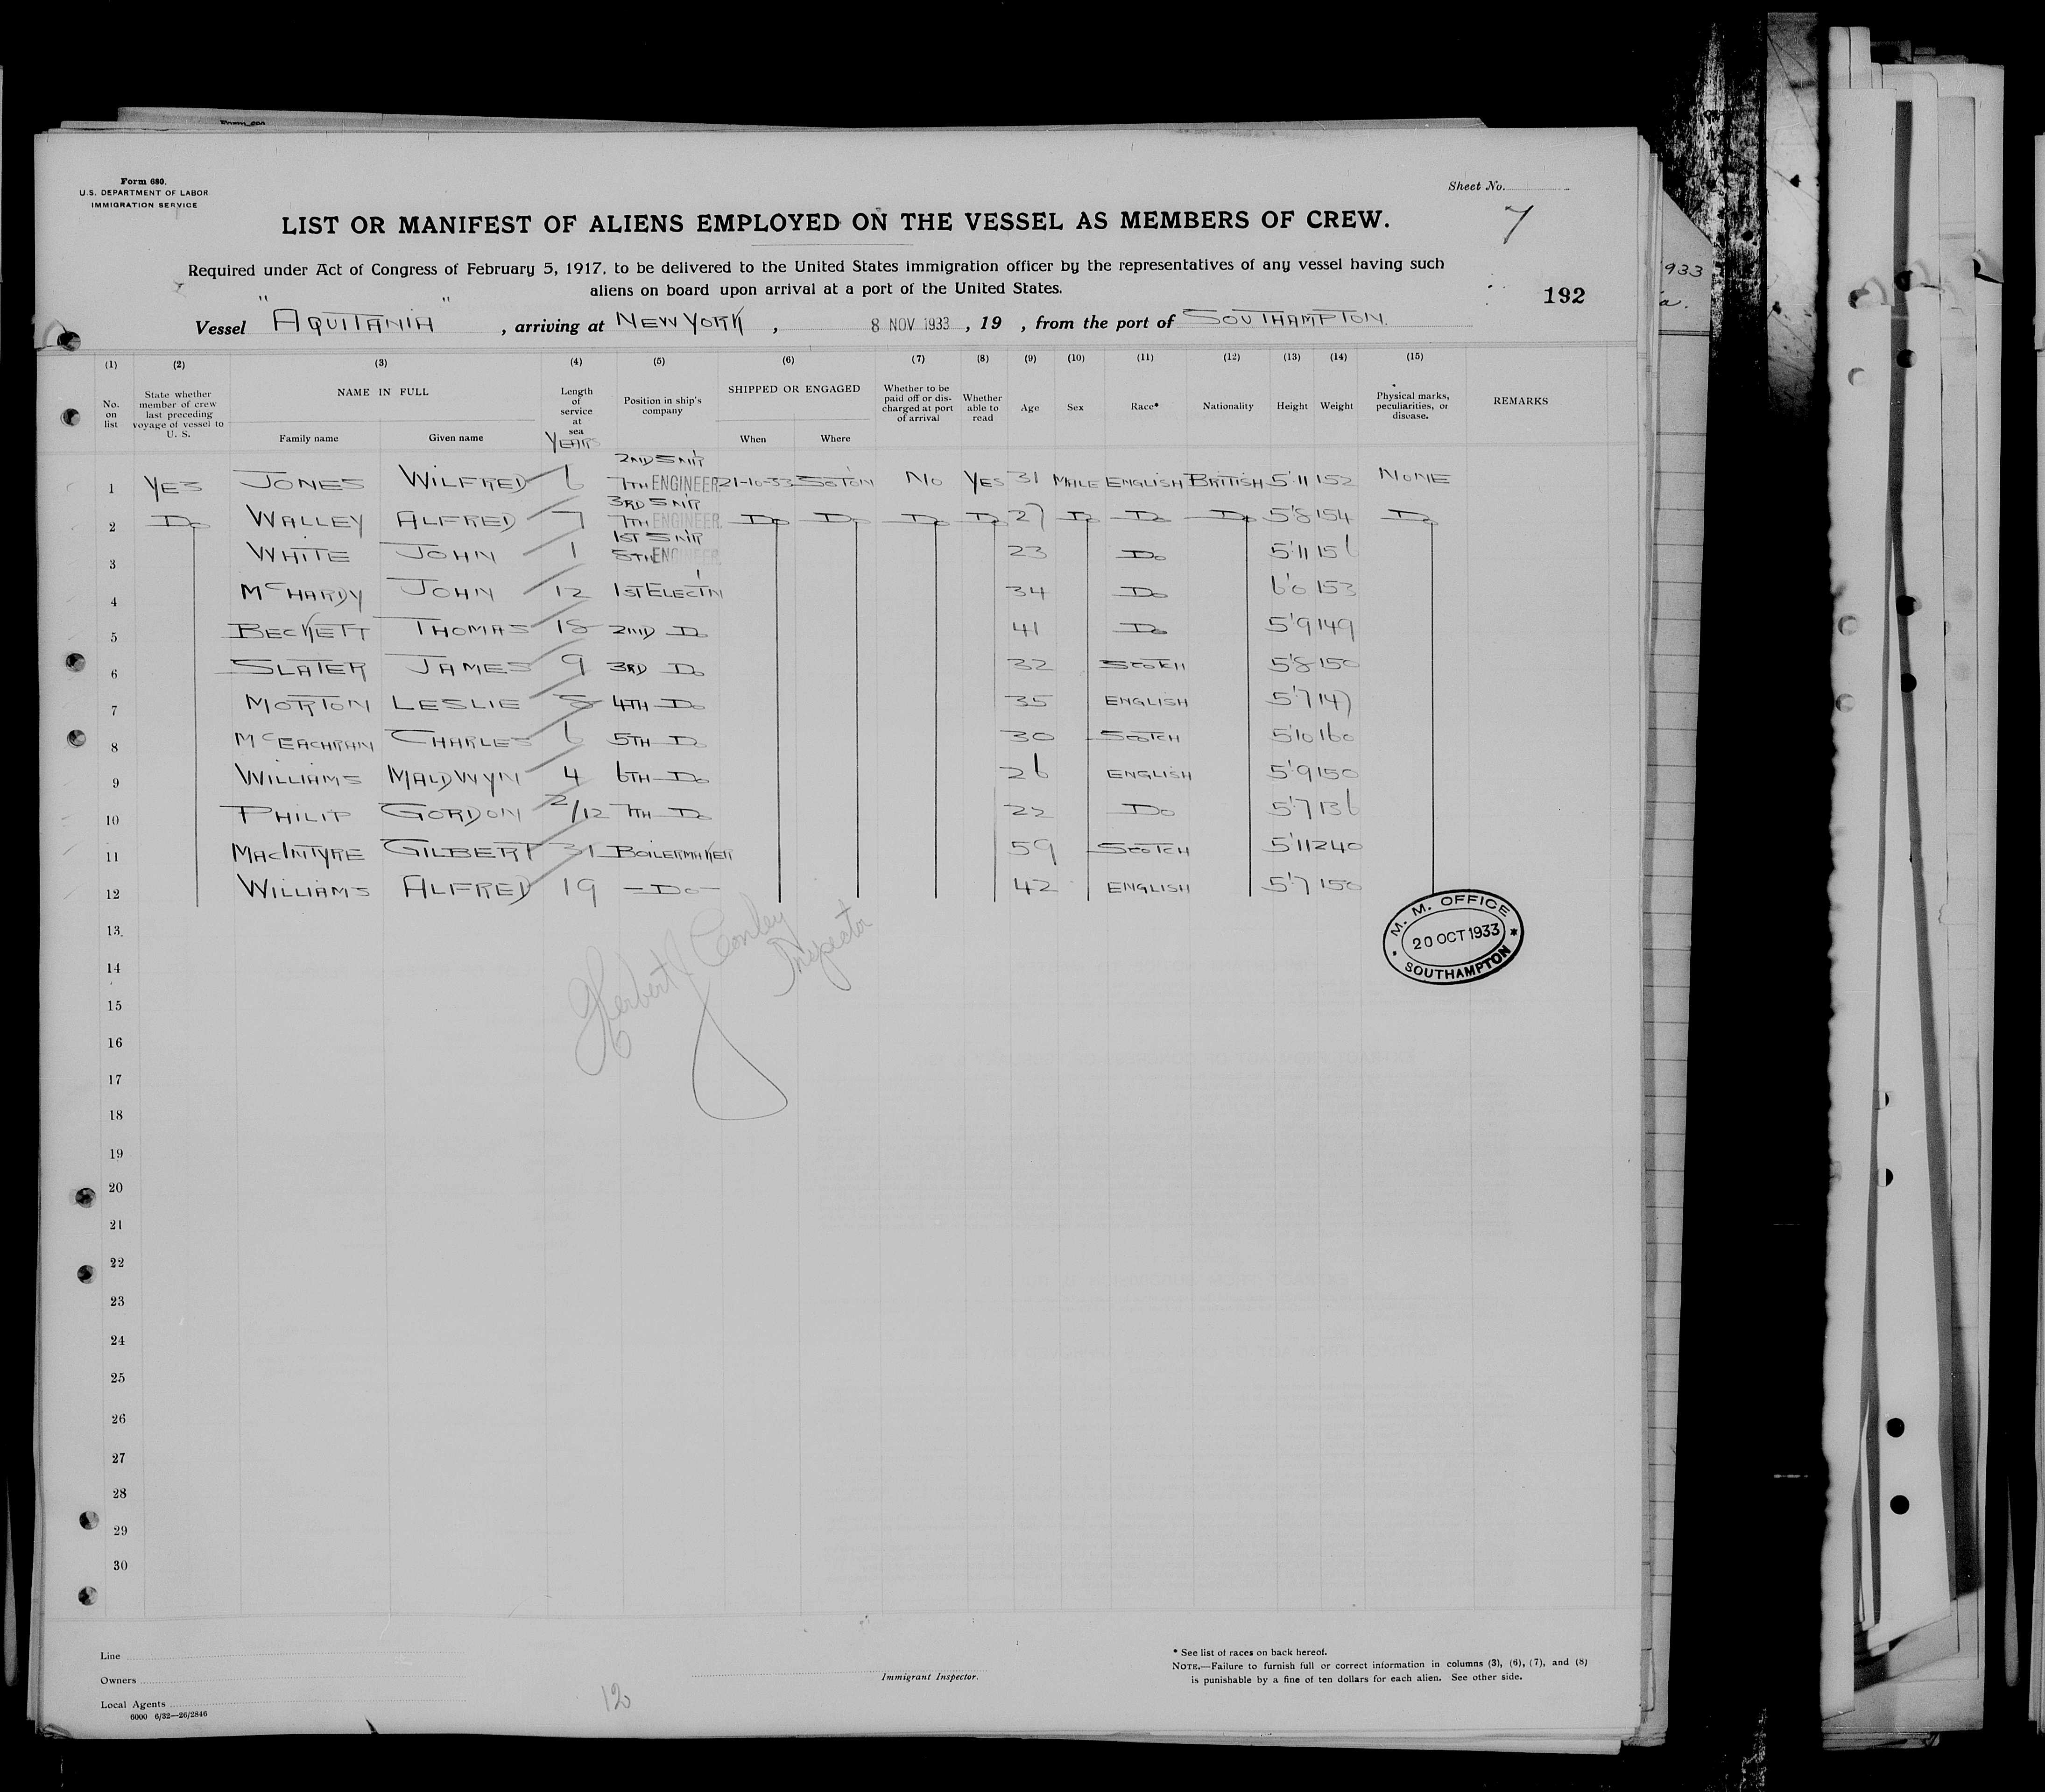 Form 680.
U.S. DEPARTMENT OF LABOR
IMMIGRATION SERVICE
Sheet No.
7
LIST OR MANIFEST OF ALIENS EMPLOYED ON THE VESSEL AS MEMBERS OF CREW.
Required under Act of Congress of February 5, 1917, to be delivered to the United States immigration officer by the representatives of any vessel having such
aliens on board upon arrival at a port of the United States.
192
933
Vessel "AQUITANIA", arriving at NEW YORK, 8 NOV 1933, 19 , from the port of SOUTHAMPTON.
(1) (2) (3) (4) (5) (6) (7) (8) (9) (10) (11) (12) (13) (14) (15)
No. on list
State whether member of crew last preceding voyage of vessel to U. S.
NAME IN FULL
Family name
Given name
Length of service at sea
YEARS
Position in ship's company
SHIPPED OR ENGAGED
When
Where
Whether to be paid off or discharged at port of arrival
Whether able to read
Age
Sex
Race*
Nationality
Height
Weight
Physical marks, peculiarities, or disease.
REMARKS
1 YES JONES WILFRED 6 2ND SNR 7TH ENGINEER 21-10-33 SOTON NO YES 31 MALE ENGLISH BRITISH 5'11 152 NONE
2 Do WALLEY ALFRED 7 3RD SNR 7TH ENGINEER Do Do Do Do 27 Do Do Do 5'8 154 Do
3 WHITE JOHN 1 1ST SNR 8TH ENGINEER 23 Do 5'11 156
4 McHARDY JOHN 12 1ST ELECT'N 34 Do 6'0 153
5 BECKETT THOMAS 18 2ND Do 41 Do 5'9 149
6 SLATER JAMES 9 3RD Do 32 SCOTCH 5'8 150
7 MORTON LESLIE 5 4TH Do 35 ENGLISH 5'7 147
8 McEACHRAN CHARLES 6 5TH Do 30 SCOTCH 5'10 160
9 WILLIAMS MALDWYN 4 6TH Do 26 ENGLISH 5'9 150
10 PHILIP GORDON 2/12 7TH Do 22 Do 5'7 136
11 MACINTYRE GILBERT 31 BOILERMAKER 59 SCOTCH 5'11 240
12 WILLIAMS ALFRED 19 -Do- 42 ENGLISH 5'7 150
13
14
15
16
17
18
19
20
21
22
23
24
25
26
27
28
29
30
M. M. OFFICE
20 OCT 1933
SOUTHAMPTON
Herbert J Conley
Inspector
Line
Owners
Local Agents
6000 6/32—26/2846
12
Immigrant Inspector.
* See list of races on back hereof.
NOTE.—Failure to furnish full or correct information in columns (3), (6), (7), and (8)
is punishable by a fine of ten dollars for each alien. See other side.